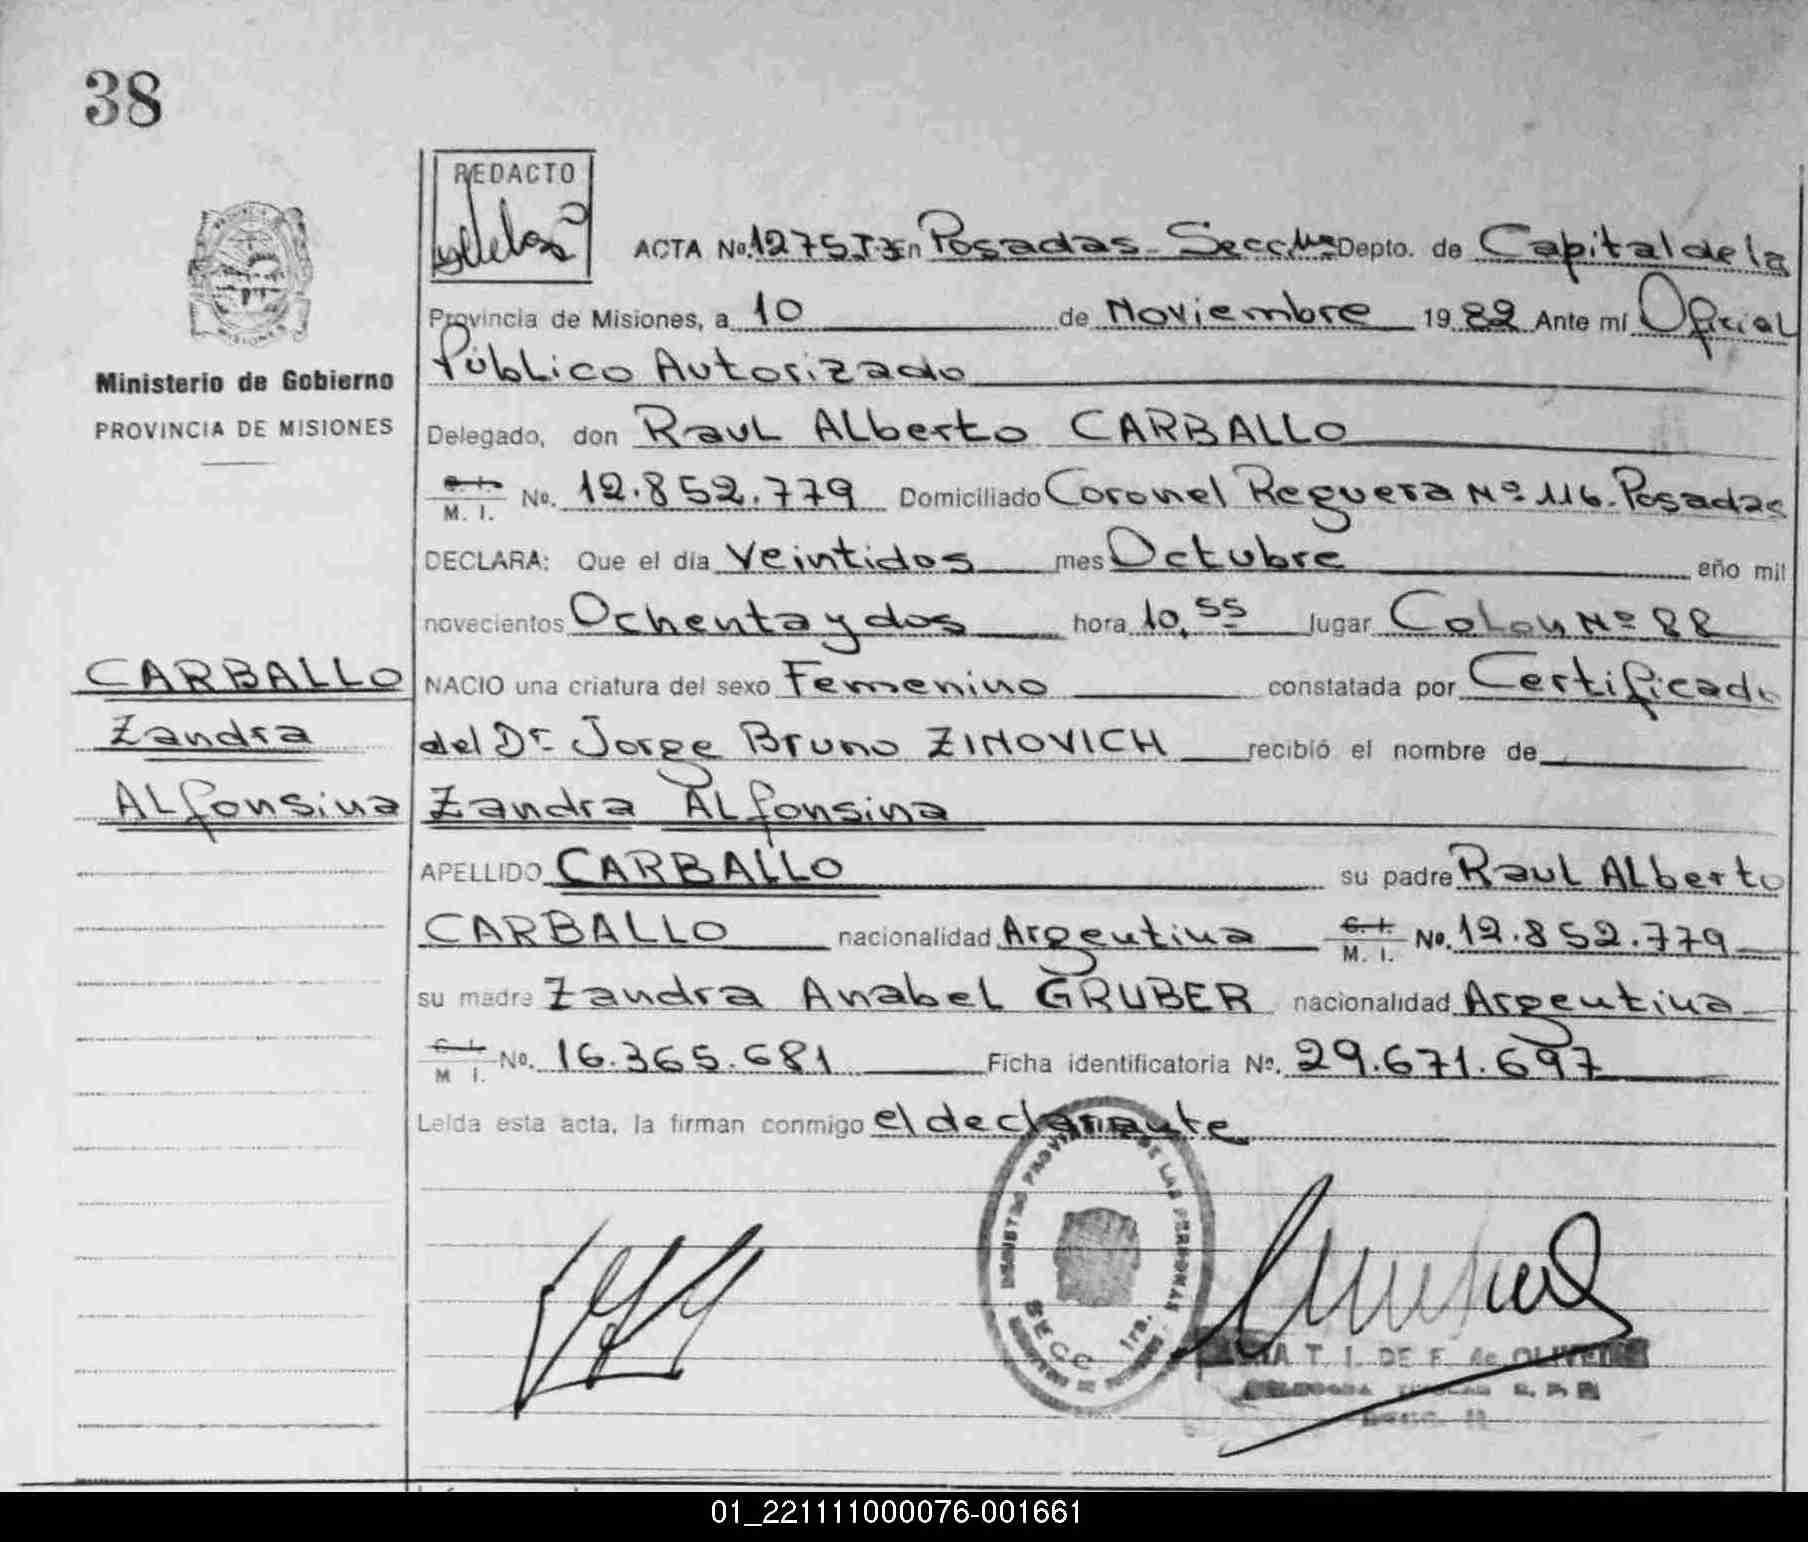 38
REDACTO
ACTA No. 1275 T En Posadas - Secc. 1ra Depto. de Capital de la
Provincia de Misiones, a 10 de Noviembre 1982 Ante mí Oficial
Público Autorizado
Ministerio de Gobierno
PROVINCIA DE MISIONES
Delegado, don Raul Alberto CARBALLO
C. I. M. I. No. 12.852.779 Domiciliado Coronel Reguera Nº 116. Posadas
DECLARA: Que el día Veintidos mes Octubre año mil
novecientos Ochenta y dos hora 10,55 lugar Colon Nº 88
CARBALLO
Zandra
Alfonsina
NACIO una criatura del sexo Femenino constatada por Certificado
del Dr Jorge Bruno ZINOVICH recibió el nombre de
Zandra Alfonsina
APELLIDO CARBALLO su padre Raul Alberto
CARBALLO nacionalidad Argentina C. I. M. I. No. 12.852.779
su madre Zandra Anabel GRUBER nacionalidad Argentina
C. I. M. I. No. 16.365.681 Ficha identificatoria No. 29.671.697
Leída esta acta, la firman conmigo el declarante
SECC. 1ra.
T. I. DE F. de OLIVEIRA
01_221111000076-001661